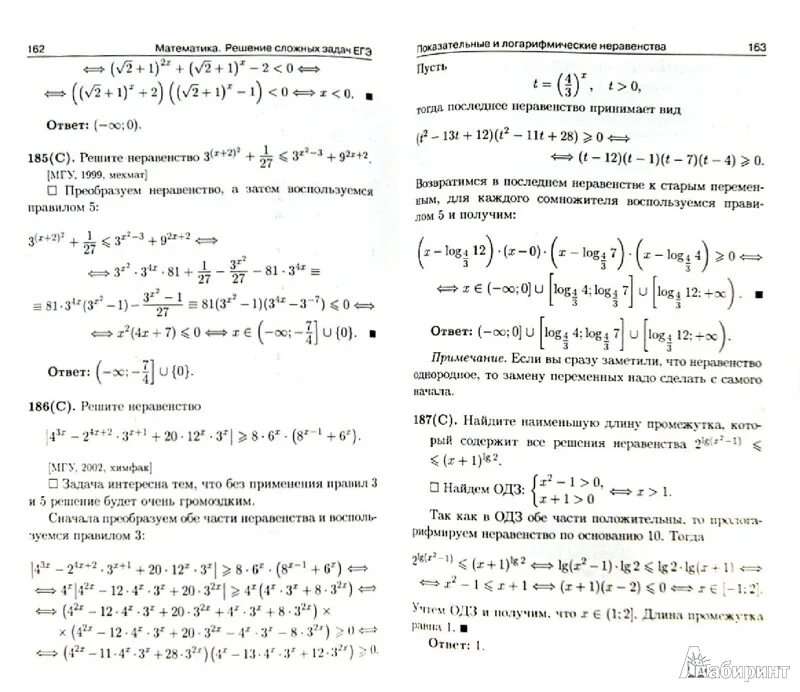 162 Математика. Решение сложных задач ЕГЭ
⟺ (√2 + 1)^{2x} + (√2 + 1)^x − 2 < 0 ⟺
⟺ ((√2 + 1)^x + 2) ((√2 + 1)^x − 1) < 0 ⟺ x < 0. ■
Ответ: (−∞; 0).
185(C). Решите неравенство 3^{(x+2)^2} + 1/27 ⩽ 3^{x^2−3} + 9^{2x+2}.
[МГУ, 1999, мехмат]
□ Преобразуем неравенство, а затем воспользуемся
правилом 5:
3^{(x+2)^2} + 1/27 ⩽ 3^{x^2−3} + 9^{2x+2} ⟺
⟺ 3^{x^2} · 3^{4x} · 81 + 1/27 − 3^{x^2}/27 − 81 · 3^{4x} ≡
≡ 81 · 3^{4x}(3^{x^2} − 1) − (3^{x^2} − 1)/27 ≡ 81(3^{x^2} − 1)(3^{4x} − 3^{−7}) ⩽ 0 ⟺
⟺ x^2(4x + 7) ⩽ 0 ⟺ x ∈ (−∞; −7/4] ∪ {0}. ■
Ответ: (−∞; −7/4] ∪ {0}.
186(C). Решите неравенство
|4^{3x} − 2^{4x+2} · 3^{x+1} + 20 · 12^x · 3^x| ⩾ 8 · 6^x · (8^{x−1} + 6^x).
[МГУ, 2002, химфак]
□ Задача интересна тем, что без применения правил 3
и 5 решение будет очень громоздким.
Сначала преобразуем обе части неравенства и восполь-
зуемся правилом 3:
|4^{3x} − 2^{4x+2} · 3^{x+1} + 20 · 12^x · 3^x| ⩾ 8 · 6^x · (8^{x−1} + 6^x) ⟺
⟺ 4^x|4^{2x} − 12 · 4^x · 3^x + 20 · 3^{2x}| ⩾ 4^x(4^x · 3^x + 8 · 3^{2x}) ⟺
⟺ (4^{2x} − 12 · 4^x · 3^x + 20 · 3^{2x} + 4^x · 3^x + 8 · 3^{2x}) ×
× (4^{2x} − 12 · 4^x · 3^x + 20 · 3^{2x} − 4^x · 3^x − 8 · 3^{2x}) ⩾ 0 ⟺
⟺ (4^{2x} − 11 · 4^x · 3^x + 28 · 3^{2x})(4^{2x} − 13 · 4^x · 3^x + 12 · 3^{2x}) ⩾ 0.
Показательные и логарифмические неравенства 163
Пусть
t = (4/3)^x, t > 0,
тогда последнее неравенство принимает вид
(t^2 − 13t + 12)(t^2 − 11t + 28) ⩾ 0 ⟺
⟺ (t − 12)(t − 1)(t − 7)(t − 4) ⩾ 0.
Возвратимся в последнем неравенстве к старым перемен-
ным, для каждого сомножителя воспользуемся прави-
лом 5 и получим:
(x − log_{4/3} 12) · (x − 0) · (x − log_{4/3} 7) · (x − log_{4/3} 4) ⩾ 0 ⟺
⟺ x ∈ (−∞; 0] ∪ [log_{4/3} 4; log_{4/3} 7] ∪ [log_{4/3} 12; +∞). ■
Ответ: (−∞; 0] ∪ [log_{4/3} 4; log_{4/3} 7] ∪ [log_{4/3} 12; +∞).
Примечание. Если вы сразу заметили, что неравенство
однородное, то замену переменных надо сделать с самого
начала.
187(C). Найдите наименьшую длину промежутка, кото-
рый содержит все решения неравенства 2^{lg(x^2−1)} ⩽
⩽ (x + 1)^{lg 2}.
□ Найдем ОДЗ: { x^2 − 1 > 0, x + 1 > 0 ⟺ x > 1.
Так как в ОДЗ обе части положительны, то пролога-
рифмируем неравенство по основанию 10. Тогда
2^{lg(x^2−1)} ⩽ (x + 1)^{lg 2} ⟺ lg(x^2 − 1) · lg 2 ⩽ lg 2 · lg(x + 1) ⟺
⟺ x^2 − 1 ⩽ x + 1 ⟺ (x + 1)(x − 2) ⩽ 0 ⟺ x ∈ [−1; 2].
Учтем ОДЗ и получим, что x ∈ (1; 2]. Длина промежутка
равна 1. ■
Ответ: 1.
Лабиринт